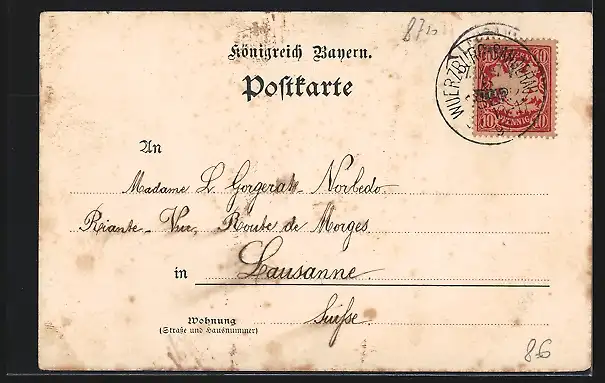 87b
Königreich Bayern.
Postkarte
WUERZBURG
10 10
PFENNIG
An
Madame L. Gorgerat-Norbedo.
Riante-Vue, Route de Morges
in Lausanne.
Wohnung
(Straße und Hausnummer)
Suisse.
86